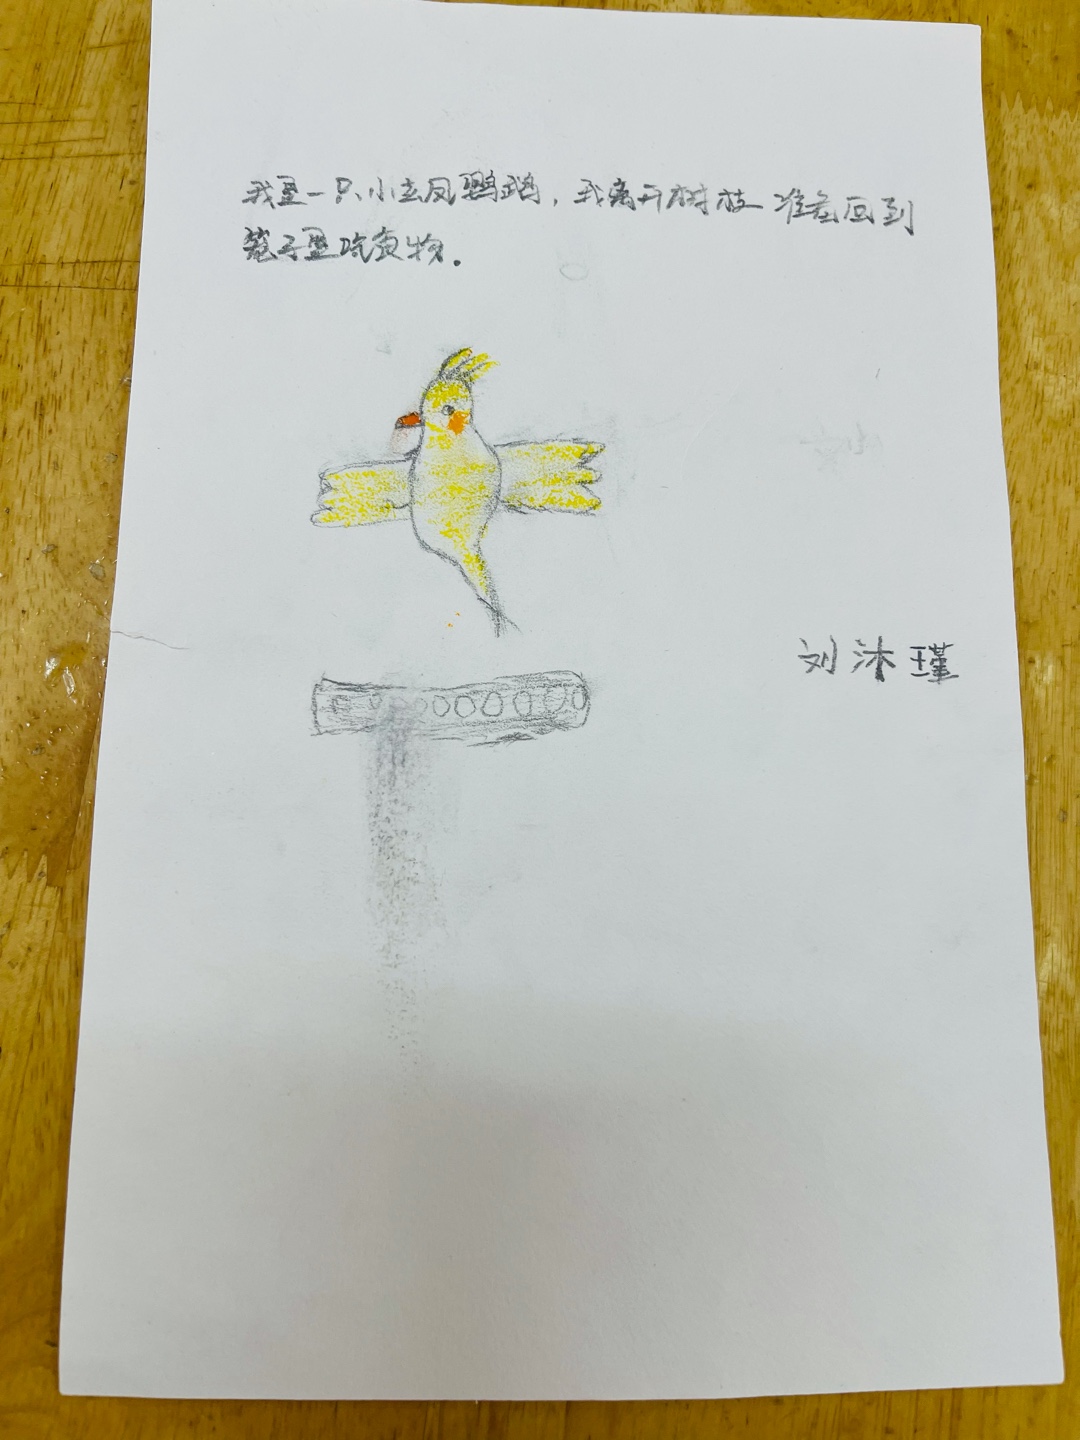 我是一只小玄凤鹦鹉，我离开树枝准备回到
笼子里吃食物.
刘沐瑾